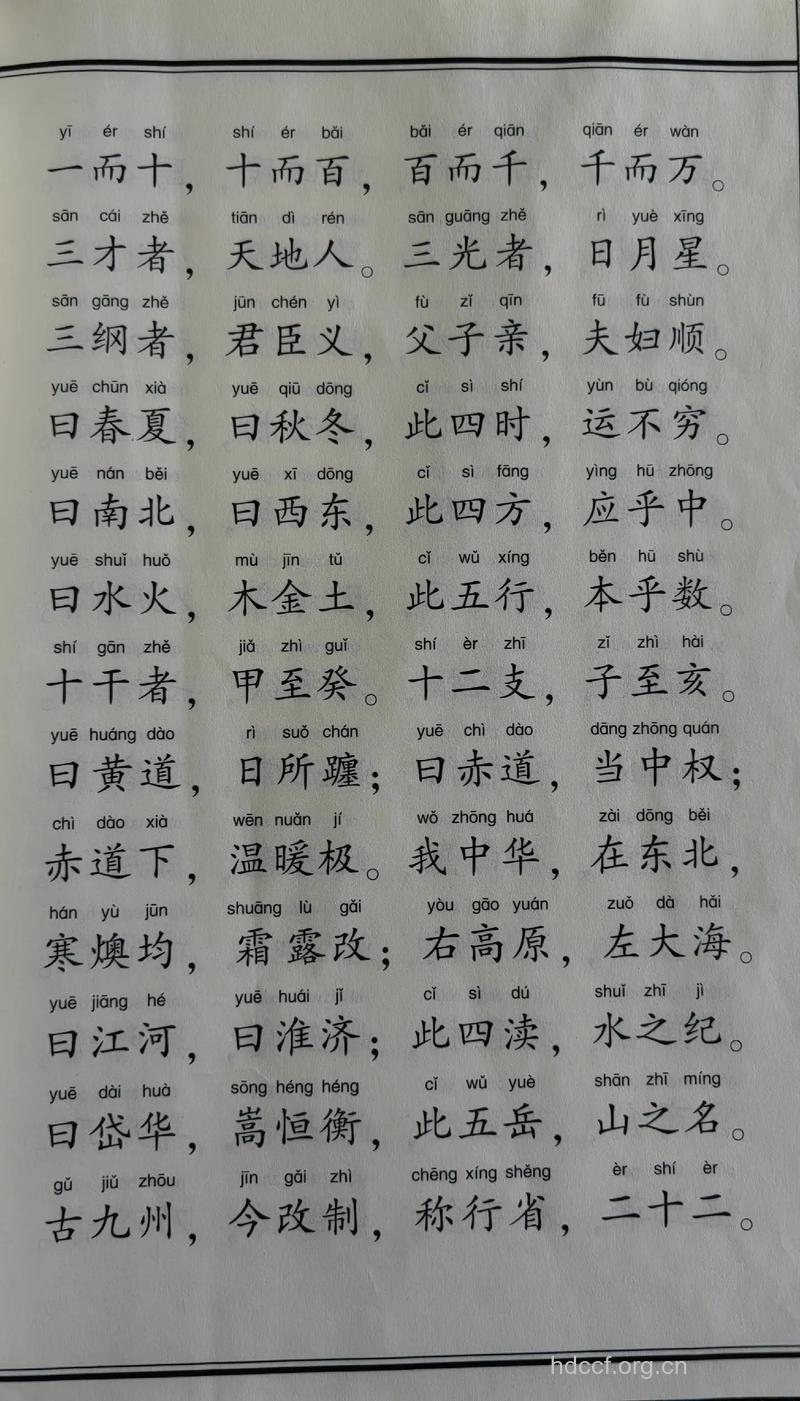 yī ér shí shí ér bǎi bǎi ér qiān qiān ér wàn
一而十，十而百，百而千，千而万。
sān cái zhě tiān dì rén sān guāng zhě rì yuè xīng
三才者，天地人。三光者，日月星。
sān gāng zhě jūn chén yì fù zǐ qīn fū fù shùn
三纲者，君臣义，父子亲，夫妇顺。
yuē chūn xià yuē qiū dōng cǐ sì shí yùn bù qióng
曰春夏，曰秋冬，此四时，运不穷。
yuē nán běi yuē xī dōng cǐ sì fāng yìng hū zhōng
曰南北，曰西东，此四方，应乎中。
yuē shuǐ huǒ mù jīn tǔ cǐ wǔ xíng běn hū shù
曰水火，木金土，此五行，本乎数。
shí gān zhě jiǎ zhì guǐ shí èr zhī zǐ zhì hài
十干者，甲至癸。十二支，子至亥。
yuē huáng dào rì suǒ chán yuē chì dào dāng zhōng quán
曰黄道，日所躔；曰赤道，当中权；
chì dào xià wēn nuǎn jí wǒ zhōng huá zài dōng běi
赤道下，温暖极。我中华，在东北，
hán yù jūn shuāng lù gǎi yòu gāo yuán zuǒ dà hǎi
寒燠均，霜露改；右高原，左大海。
yuē jiāng hé yuē huái jǐ cǐ sì dú shuǐ zhī jì
曰江河，曰淮济；此四渎，水之纪。
yuē dài huà sōng héng héng cǐ wǔ yuè shān zhī míng
曰岱华，嵩恒衡，此五岳，山之名。
gǔ jiǔ zhōu jīn gǎi zhì chēng xíng shěng èr shí èr
古九州，今改制，称行省，二十二。
hdccf.org.cn